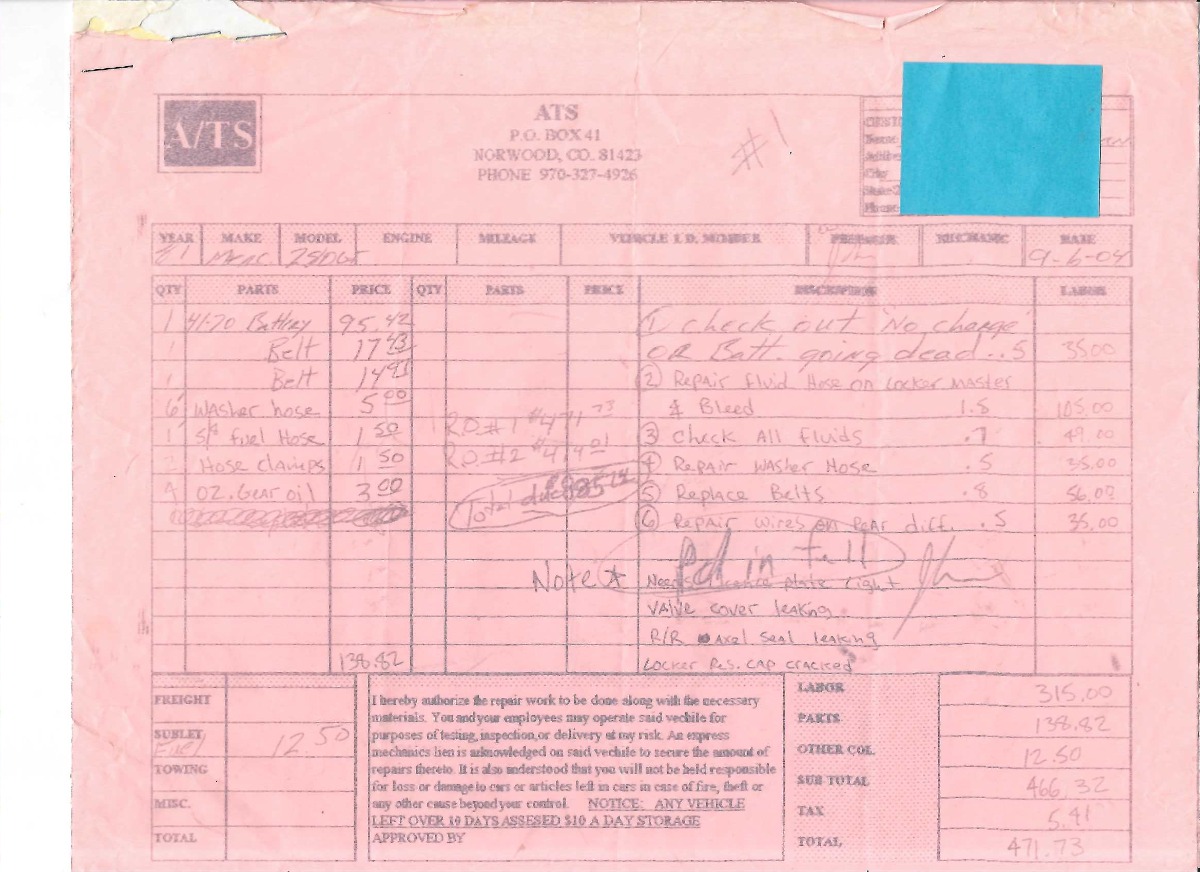 A/TS
ATS
P.O. BOX 41
NORWOOD, CO. 81423
PHONE 970-327-4926
#1
Name
City
Phone
YEAR MAKE MODEL ENGINE MILEAGE VEHICLE I. D. NUMBER MECHANIC DATE
81 9-6-04
QTY PARTS PRICE QTY PARTS PRICE DESCRIPTION LABOR
1 41-70 Battery 95.42 ① Check out 'No charge'
1 Belt 17 43 OR Batt. going dead .5 35.00
1 Belt 14 91 ② Repair Fluid Hose on Locker Master
6' Washer hose 5 00 & Bleed 1.5 105.00
1' fuel Hose 1 50 R.O.#1 $471 73 ③ Check All Fluids .7 49.00
2 Hose clamps 1 50 R.O.#2 ④ Repair Washer Hose .5 35.00
4 oz. Gear oil 3 00 Total due ⑤ Replace Belts .8 56.00
⑥ Repair wires on Rear diff. .5 35.00
Pd in full
Note * Needs plate Light
Valve cover leaking
R/R axel seal leaking
138.82 Locker Res. cap cracked
FREIGHT
SUBLET 12.50
Fuel
TOWING
MISC.
TOTAL
I hereby authorize the repair work to be done along with the necessary
materials. You and your employees may operate said vechile for
purposes of testing, inspection, or delivery at my risk. An express
mechanics lien is acknowledged on said vechile to secure the amount of
repairs thereto. It is also understood that you will not be held responsible
for loss or damage to cars or articles left in cars in case of fire, theft or
any other cause beyond your control. NOTICE: ANY VEHICLE
LEFT OVER 10 DAYS ASSESED $10 A DAY STORAGE
APPROVED BY
LABOR 315.00
PARTS 138.82
OTHER COL. 12.50
SUB TOTAL 466.32
TAX 5.41
TOTAL 471.73